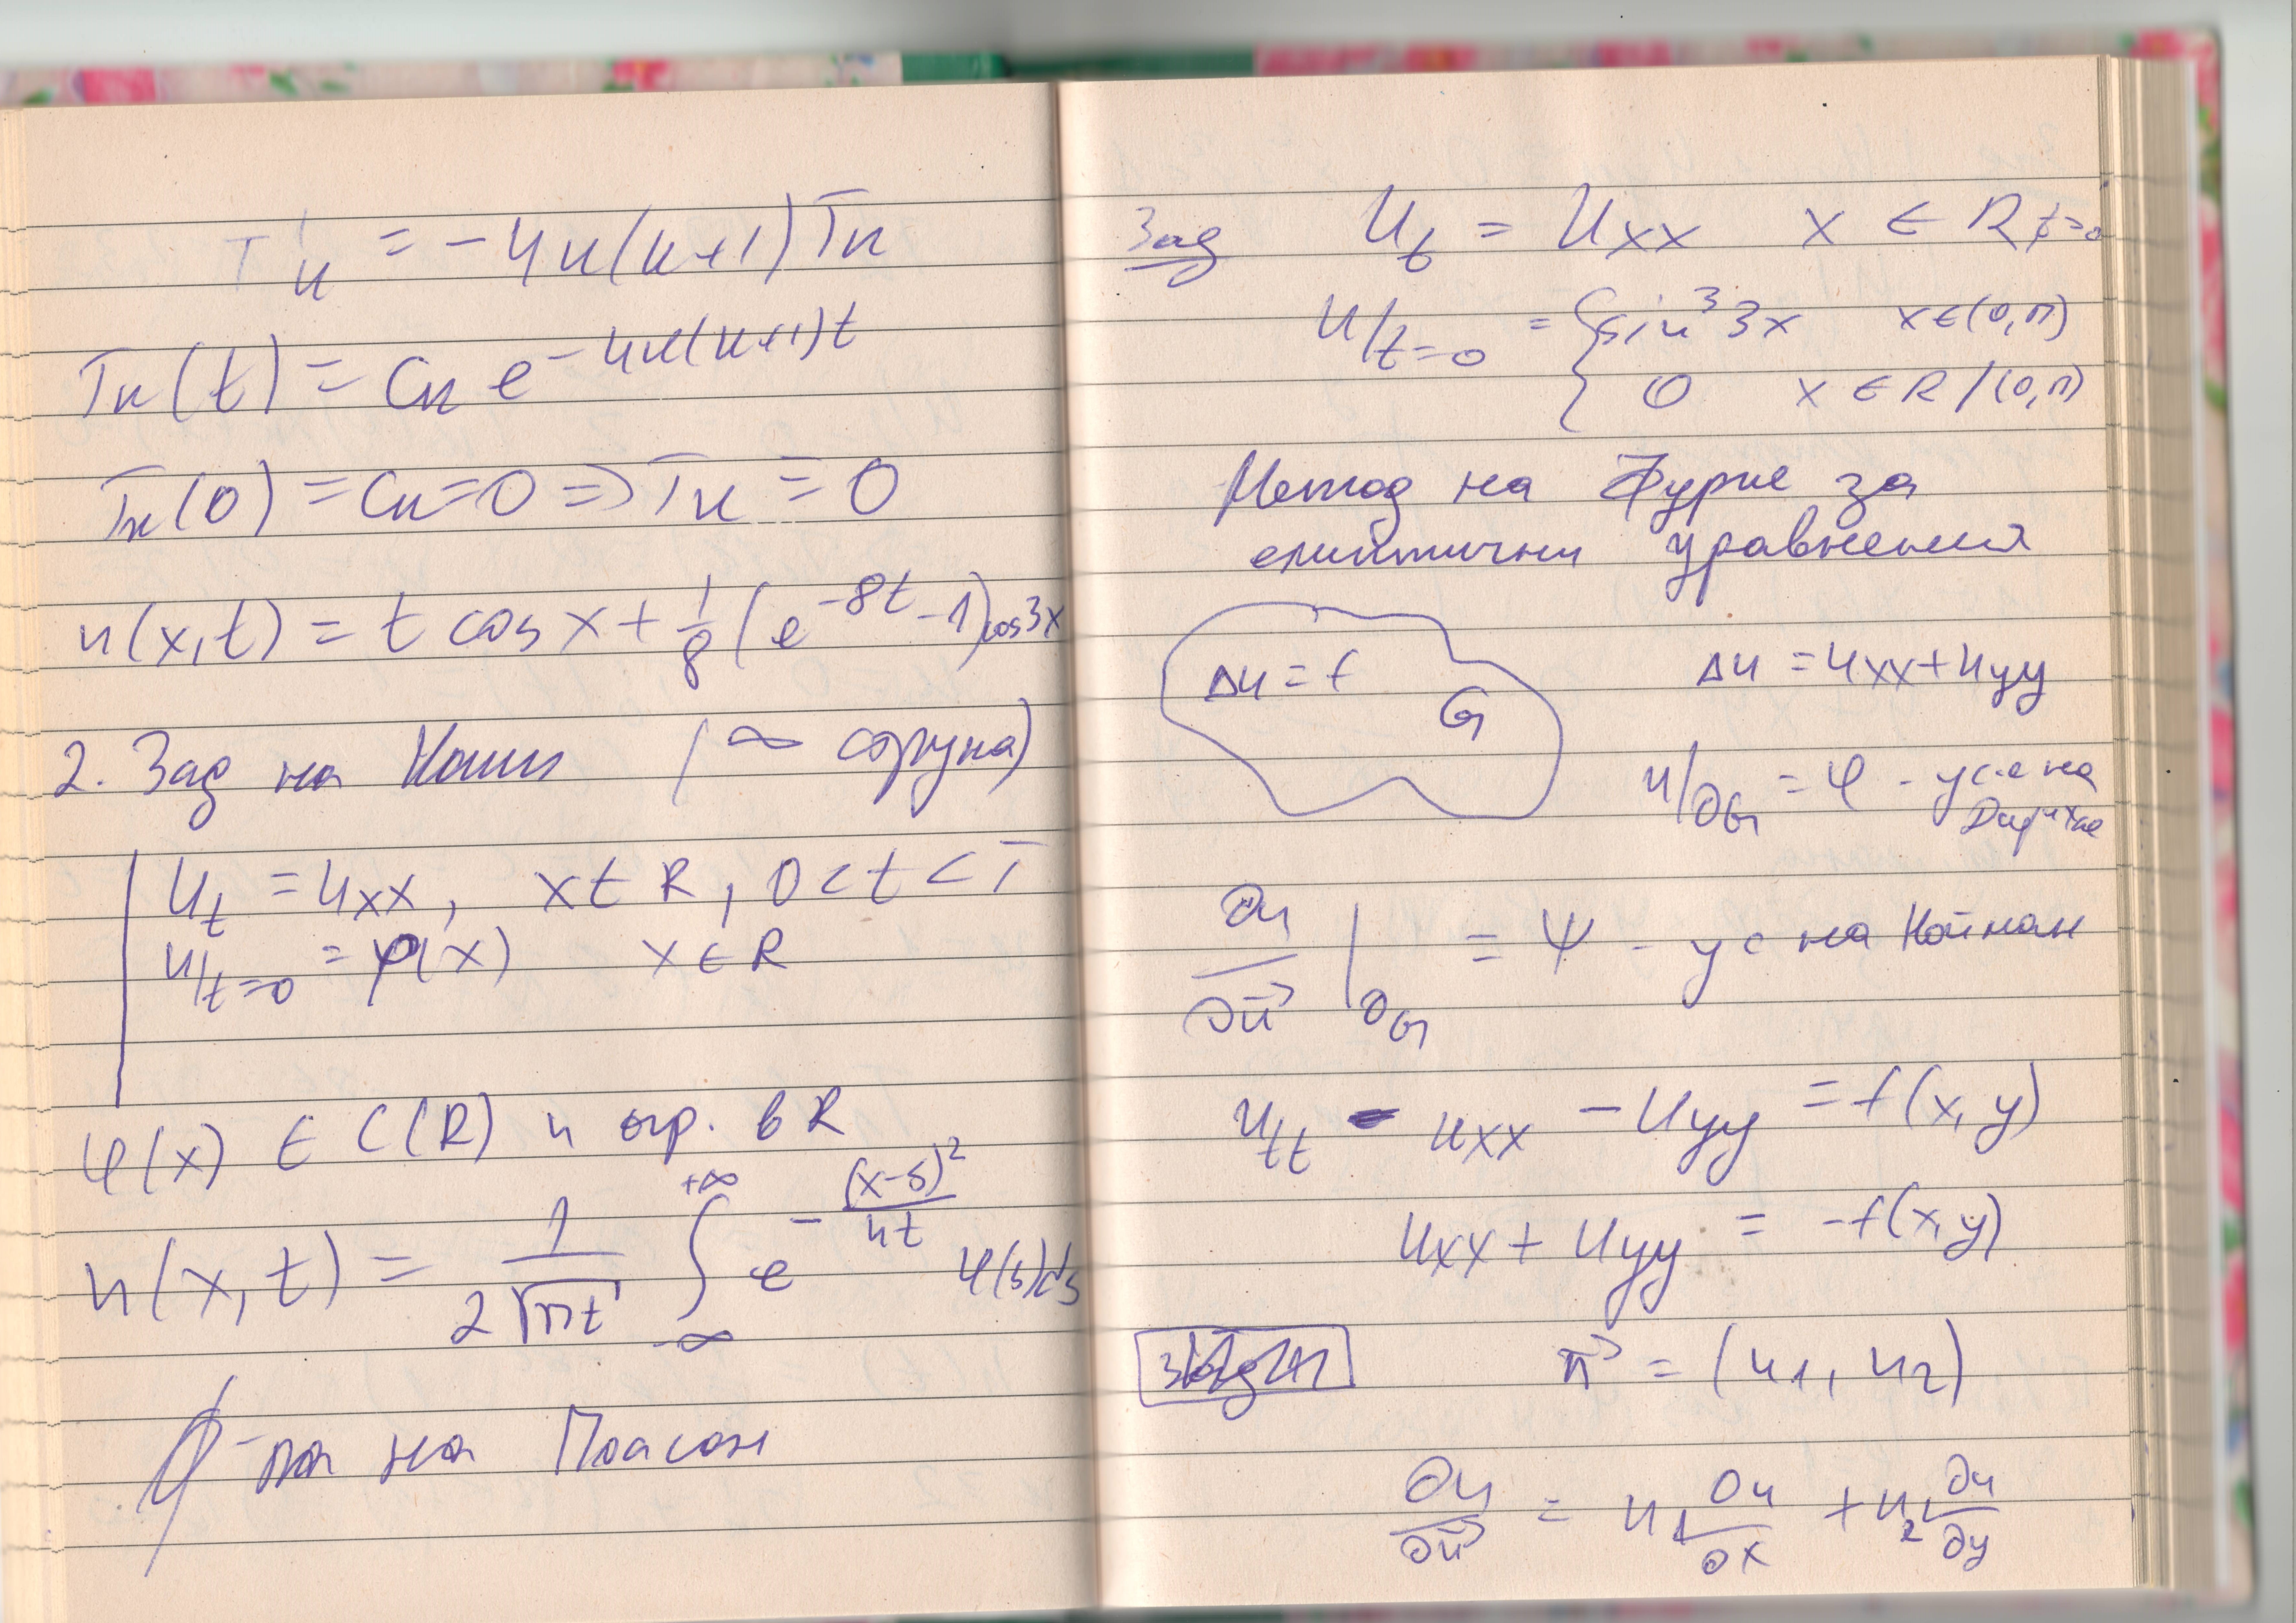 T'к = -4к(к+1)Tк
Tк(t) = Cк e^{-4к(к+1)t}
Tк(0) = Cк = 0 => Tк = 0
u(x,t) = t cos x + 1/8 (e^{-8t} - 1)cos3x
2. Зад на Коши (∞ струна)
u_t = u_xx, x ∈ R, 0 < t < T
u/_{t=0} = φ(x) x ∈ R
φ(x) ∈ C(R) и огр. в R
u(x,t) = 1/(2√(πt)) ∫_{-∞}^{+∞} e^{-(x-s)²/4t} φ(s)ds
ф-ла на Поасон
Зад u_t = u_xx x ∈ R
u/_{t=0} = { sin³3x x ∈ (0,π)
0 x ∈ R/(0,π)
Метод на Фурие за
елиптични уравнения
Δu = f G Δu = u_xx + u_yy
u/_{∂G} = φ - ус-е на
Дирихле
∂u/∂n⃗ |_{∂G} = ψ - ус на Нойман
u_tt - u_xx - u_yy = f(x,y)
u_xx + u_yy = -f(x,y)
n⃗ = (n1, n2)
∂u/∂n⃗ = n1 ∂u/∂x + n2 ∂u/∂y